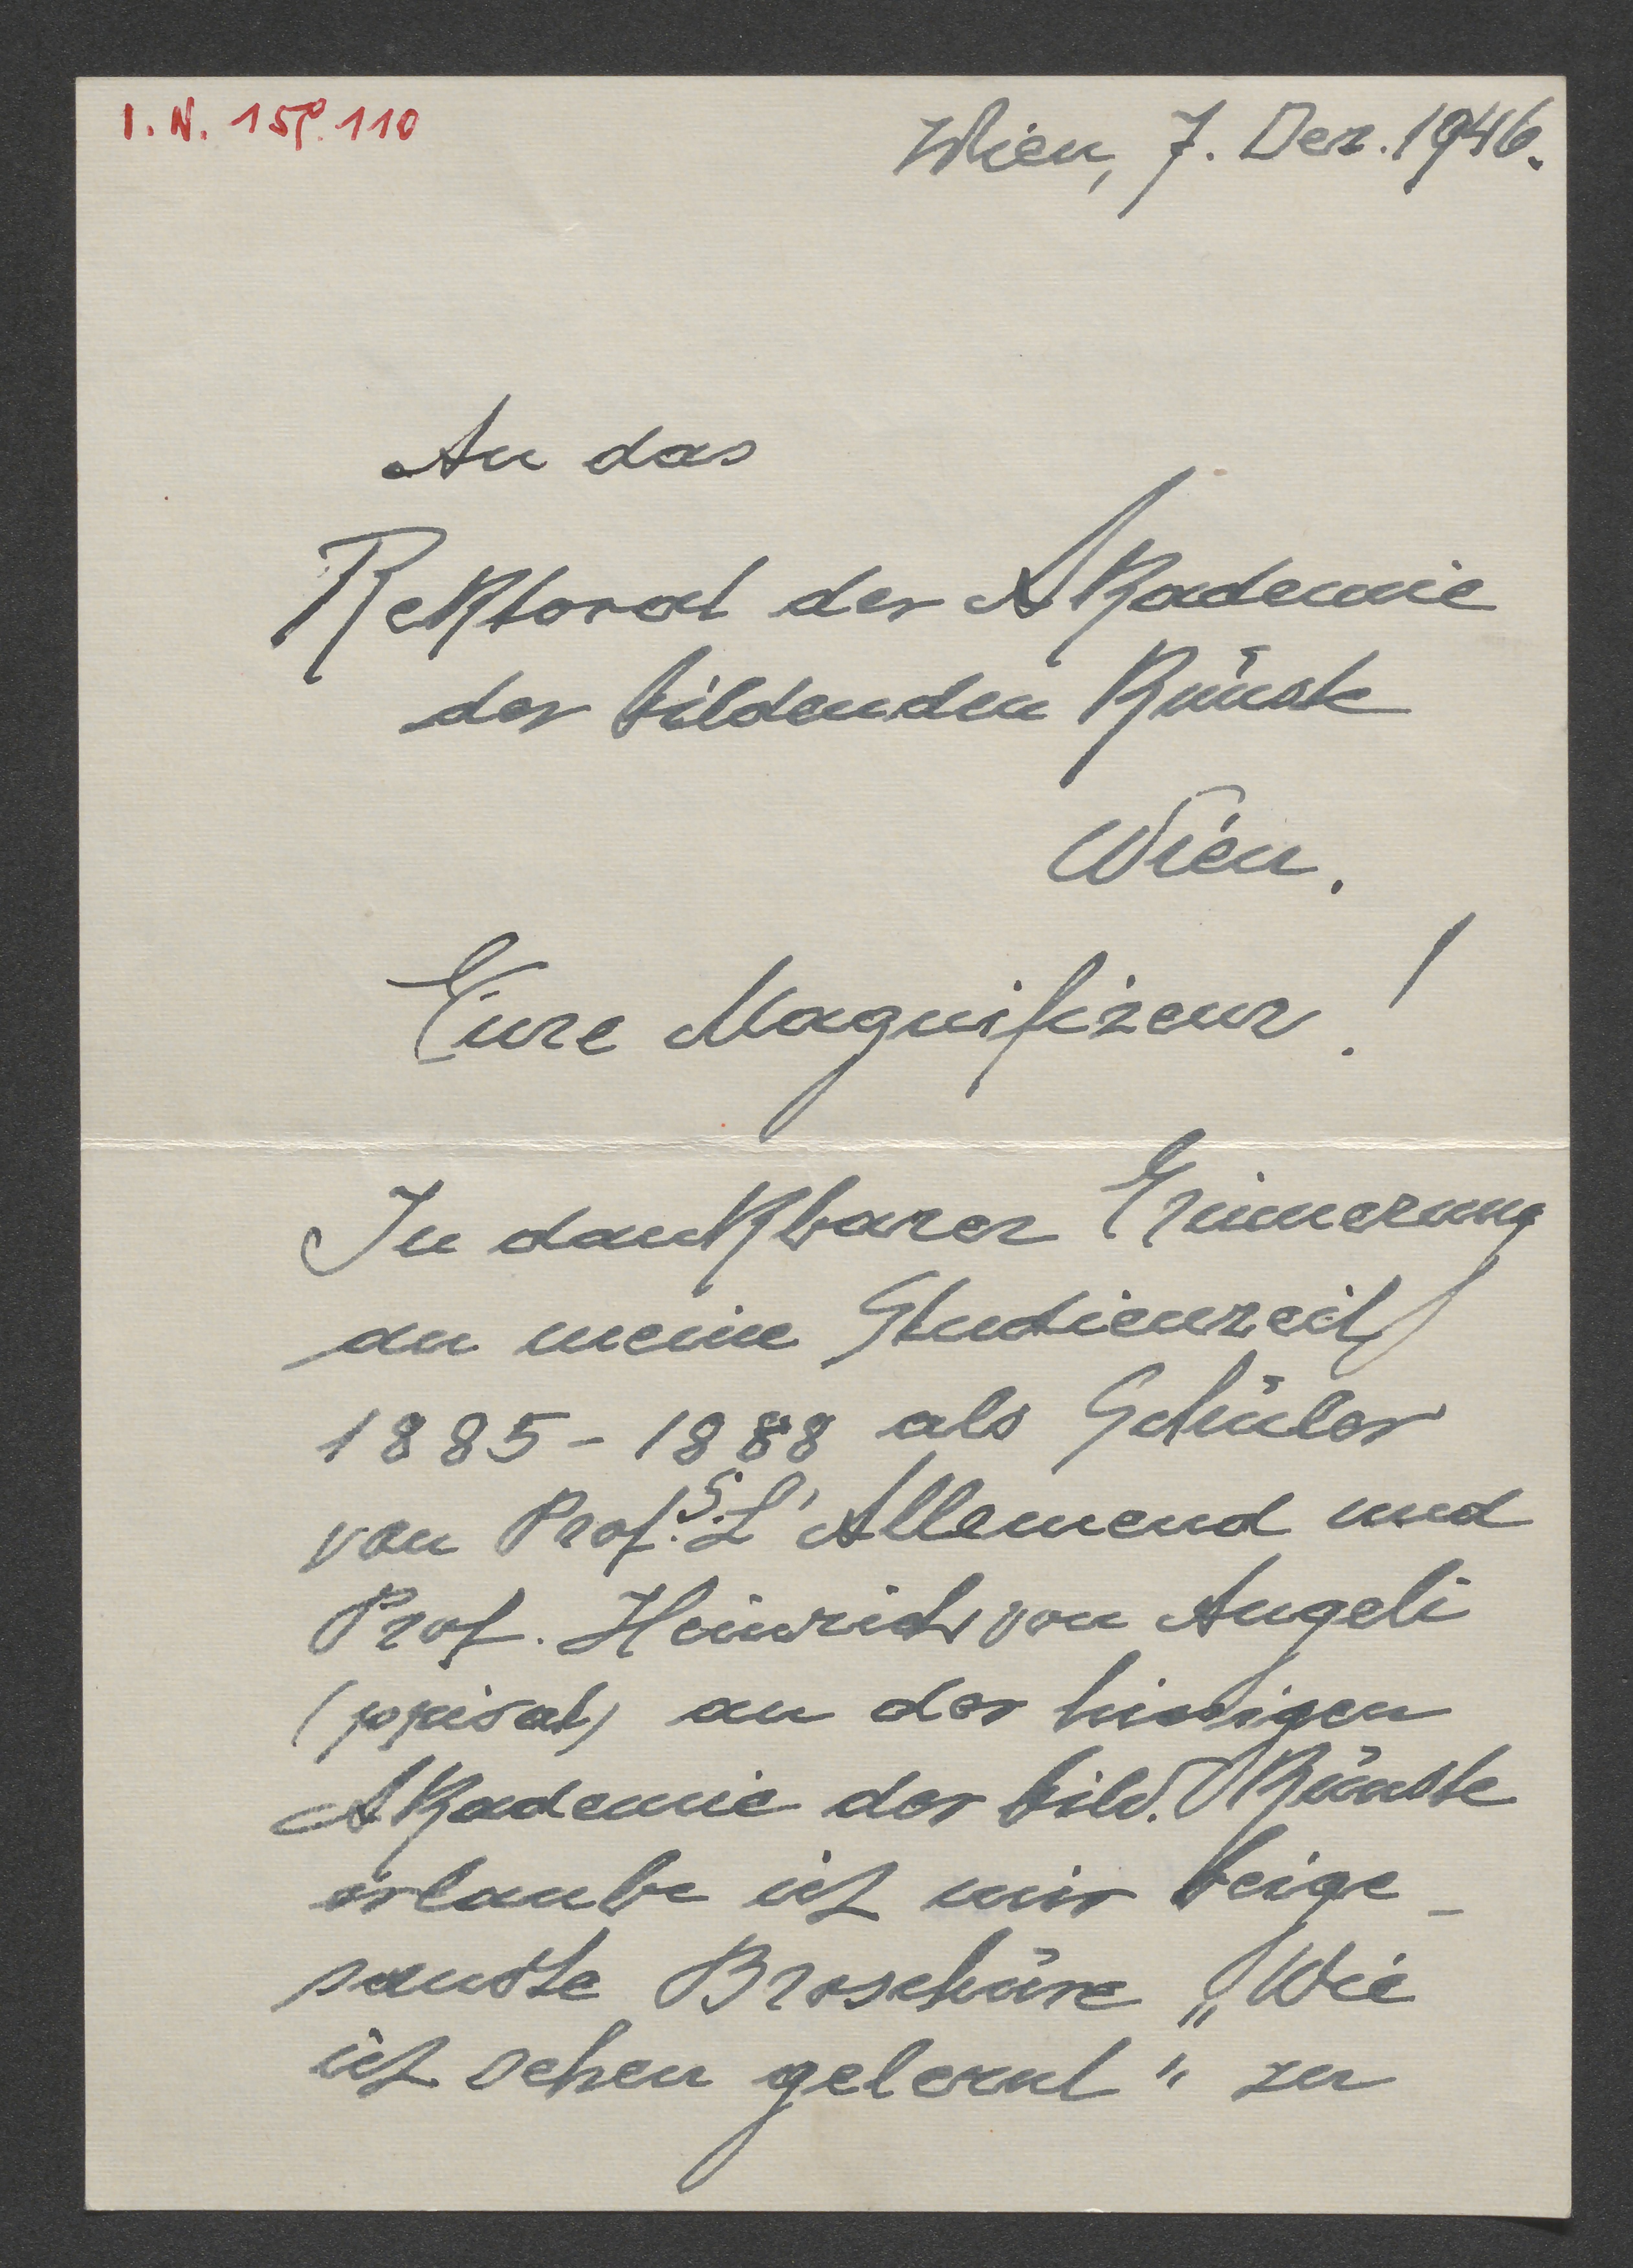 I. N. 159.110
Wien, 7. Dez. 1946.
An das
Rektorat der Akademie
der bildenden Künste
Wien.
Eure Magnifizenz!
In dankbarer Erinnerung
an meine Studienzeit
1885 - 1888 als Schüler
von Prof. S. L'Allemend und
Prof. Heinrich von Angeli
(privat) an der hiesigen
Akademie der bild. Künste
erlaube ich mir beige-
sandte Broschüre „Wie
ich sehen gelernt" zu